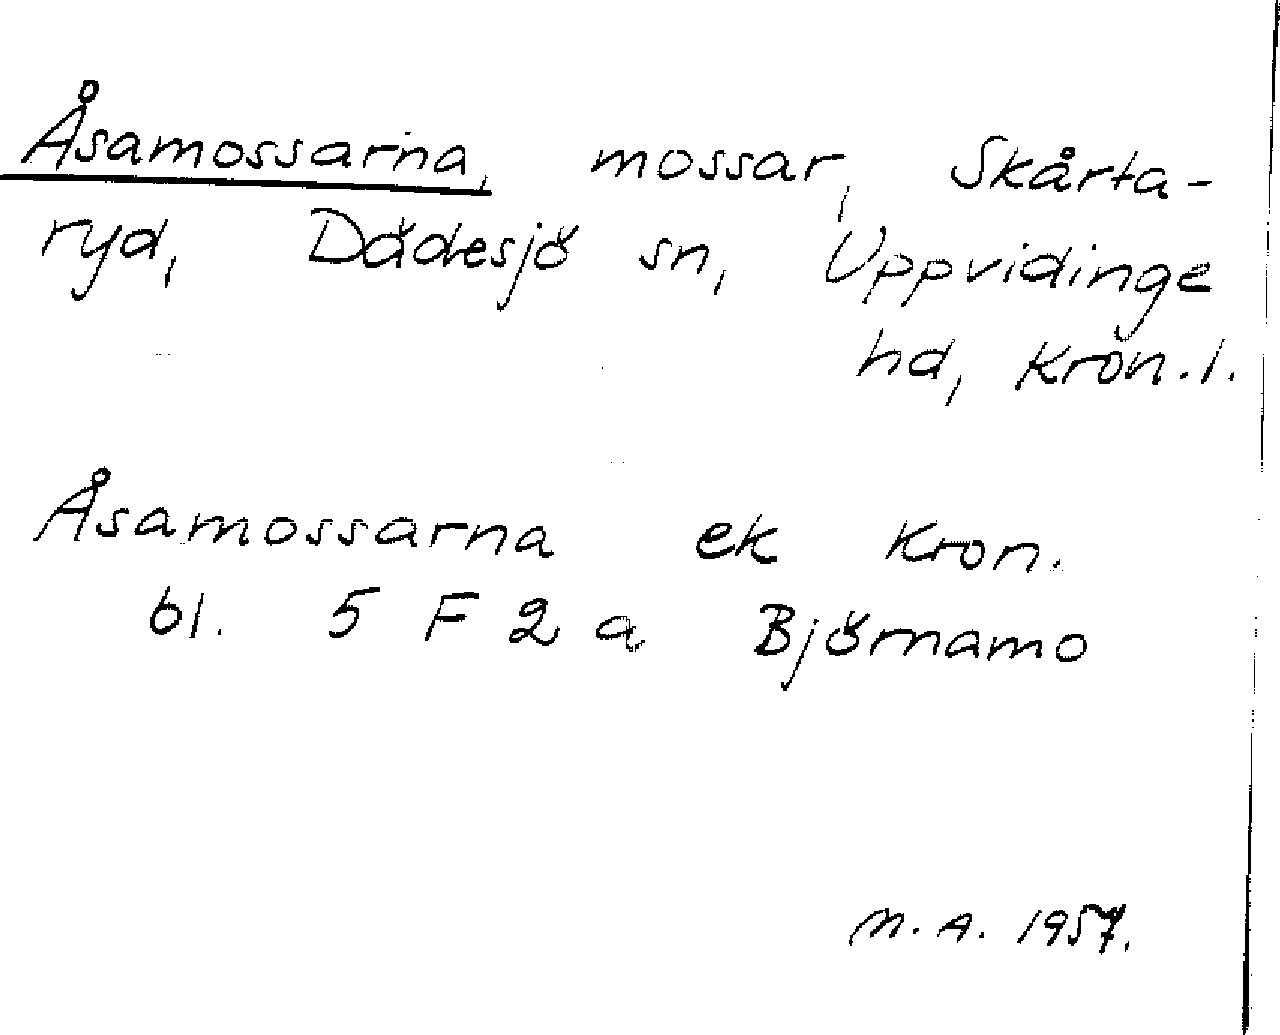 Åsamossarna, mossar, Skårta-
ryd, Dädesjö sn, Uppvidinge
hd, Kron.l.
Åsamossarna ek Kron.
bl. 5 F 2 a Björnamo
M. A. 1957.